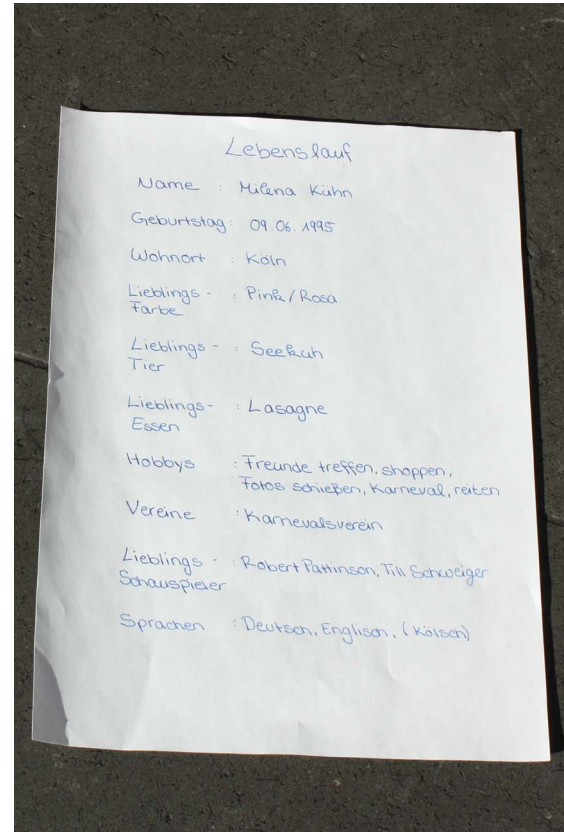 Lebenslauf
Name : Milena Kühn
Geburtstag: 09.06.1995
Wohnort : Köln
Lieblings- : Pink/Rosa
Farbe
Lieblings- : Seekuh
Tier
Lieblings- : Lasagne
Essen
Hobbys : Freunde treffen, shoppen,
Fotos schießen, Karneval, reiten
Vereine : Karnevalsverein
Lieblings- : Robert Pattinson, Till Schweiger
Schauspieler
Sprachen : Deutsch, Englisch, (Kölsch)